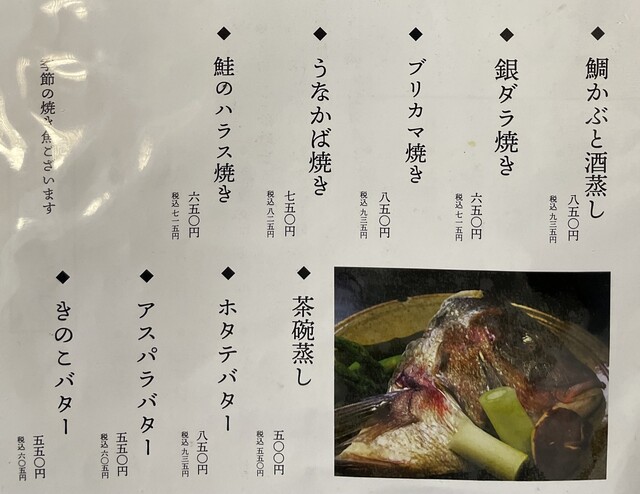 ◆鯛かぶと酒蒸し
八五〇円
税込 九三五円
◆銀ダラ焼き
六五〇円
税込 七一五円
◆ブリカマ焼き
八五〇円
税込 九三五円
◆うなかば焼き
七五〇円
税込 八二五円
◆鮭のハラス焼き
六五〇円
税込 七一五円
季節の焼き魚ございます
◆茶碗蒸し
五〇〇円
税込 五五〇円
◆ホタテバター
八五〇円
税込 九三五円
◆アスパラバター
五五〇円
税込 六〇五円
◆きのこバター
五五〇円
税込 六〇五円